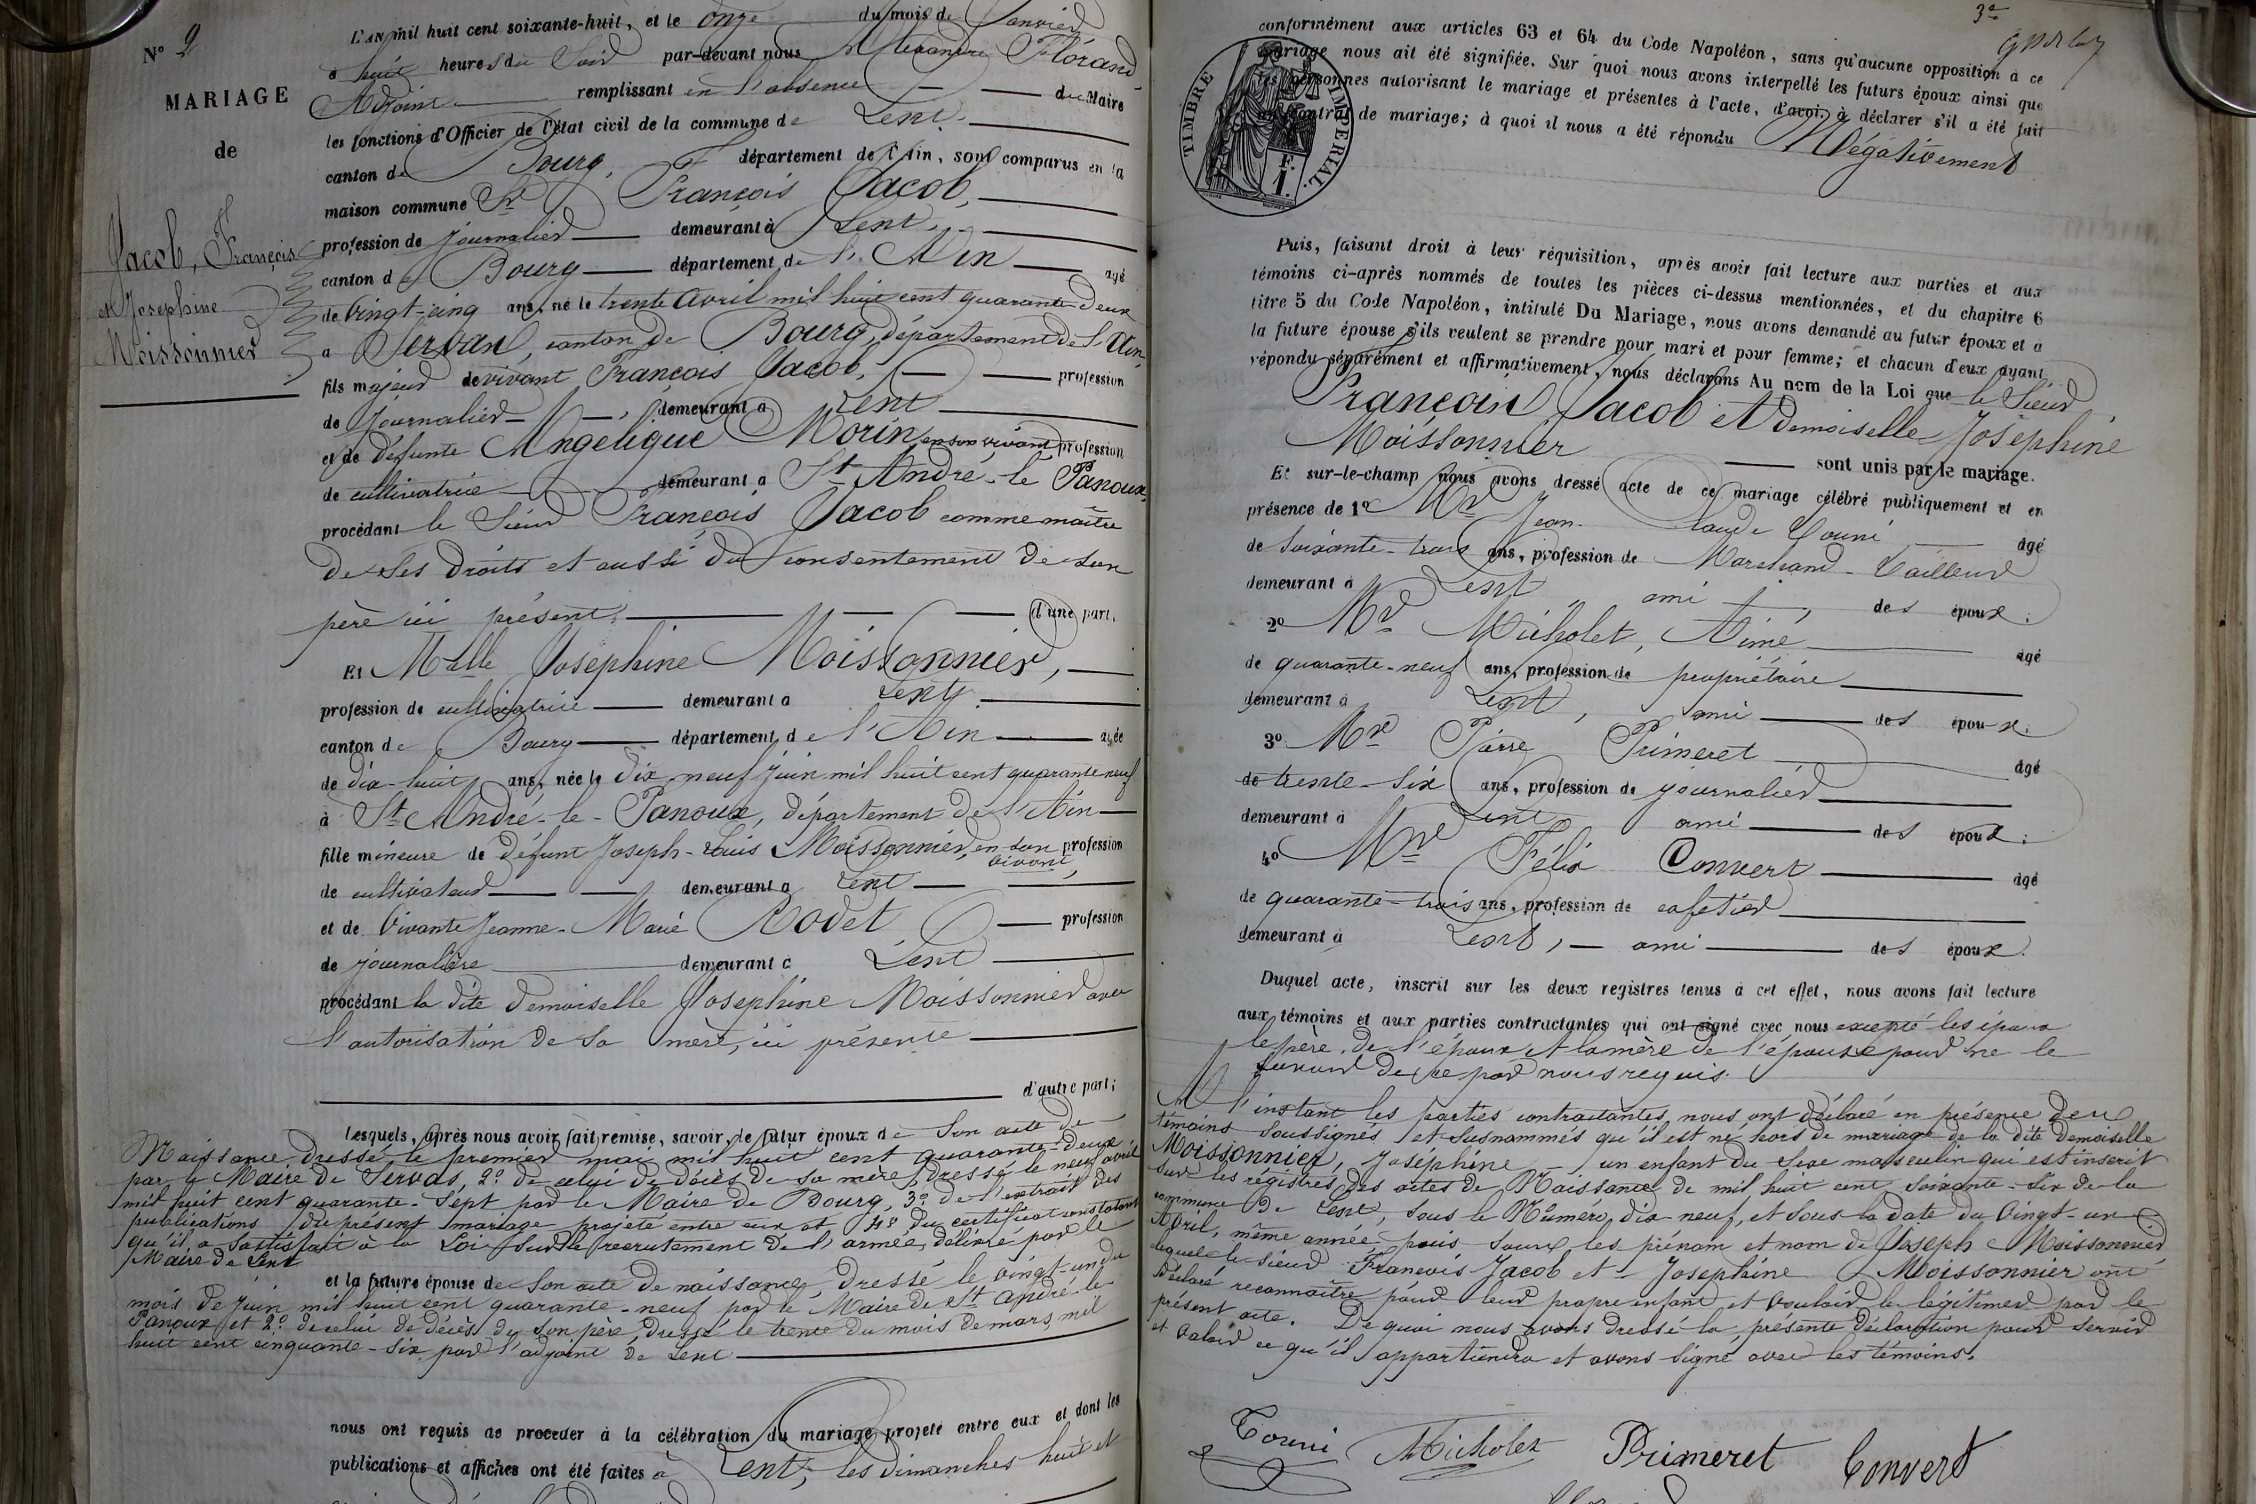 N° 2
MARIAGE
de
Jacob, François
et Josephine
Moissonnier
L'AN mil huit cent soixante-huit, et le onze du mois de Janvier
à huit heures du Soir par-devant nous Alexandre Florand
Adjoint remplissant en l'absence du Maire
les fonctions d'Officier de l'état civil de la commune de Lent
canton de Bourg, département de l'Ain, sont comparus en la
maison commune Sr François Jacob,
profession de journalier demeurant à Lent,
canton de Bourg département de l'Ain agé
de vingt-cinq ans, né le trente avril mil huit cent quarante-deux
à Servas, canton de Bourg, département de l'Ain
fils majeur de vivant François Jacob, profession
de Journalier, demeurant à Lent
et de défunte Angélique Morin, en son vivant profession
de cultivatrice demeurant à St André-le-Panoux
procédant le Sieur François Jacob comme maître
de ses droits et aussi du consentement de son
père ici présent, d'une part.
Et Melle Josephine Moissonnier,
profession de cultivatrice demeurant à Lent,
canton de Bourg département de l'Ain agée
de dix-huit ans, née le dix neuf juin mil huit cent quarante neuf
à St André-le-Panoux, département de l'Ain
fille mineure de défunt Joseph-Louis Moissonnier, en son vivant, profession
de cultivateur demeurant à Lent
et de vivante Jeanne-Marie Rodet, profession
de journalière demeurant à Lent
procédant la dite demoiselle Josephine Moissonnier avec
l'autorisation de sa mère, ici présente
d'autre part;
Lesquels, après nous avoir fait remise, savoir, le futur époux de son acte de
Naissance dressé le premier mai mil huit cent quarante-deux
par le Maire de Servas, 2° de celui de décès de sa mère, dressé le neuf avril
mil huit cent quarante-sept par le Maire de Bourg, 3° de l'extrait des
publications du présent mariage projeté entre eux et 4° du certificat constatant
qu'il a satisfait à la Loi sur le recrutement de l'armée, délivré par le
Maire de Lent
et la future épouse de son acte de naissance, dressé le vingt-un du
mois de juin mil huit cent quarante-neuf par le Maire de St André-le-
Panoux et 2° de celui de décès de son père, dressé le trente du mois de mars mil
huit cent cinquante-six par l'adjoint de Lent
nous ont requis de procéder à la célébration du mariage projeté entre eux et dont les
publications et affiches ont été faites à Lent, les dimanches huit et
3e
conformément aux articles 63 et 64 du Code Napoléon, sans qu'aucune opposition à ce
mariage nous ait été signifiée. Sur quoi nous avons interpellé les futurs époux ainsi que
les personnes autorisant le mariage et présentes à l'acte, d'avoir à déclarer s'il a été fait
un contrat de mariage; à quoi il nous a été répondu Négativement
TIMBRE IMPERIAL
F.
1.
Puis, faisant droit à leur réquisition, après avoir fait lecture aux parties et aux
témoins ci-après nommés de toutes les pièces ci-dessus mentionnées, et du chapitre 6
titre 5 du Code Napoléon, intitulé Du Mariage, nous avons demandé au futur époux et à
la future épouse s'ils veulent se prendre pour mari et pour femme; et chacun d'eux ayant
répondu séparément et affirmativement, nous déclarons Au nom de la Loi que le Sieur
François Jacob et Demoiselle Joséphine
Moissonnier sont unis par le mariage.
Et sur-le-champ nous avons dressé acte de ce mariage célébré publiquement et en
présence de 1° Mr Jean-Claude Touni agé
de soixante-trois ans, profession de Marchand-Tailleur
demeurant à Lent, ami, des époux:
2° Mr Micholet, Aimé agé
de quarante-neuf ans, profession de propriétaire
demeurant à Lent, ami des époux:
3° Mr Pierre Primeret agé
de trente-six ans, profession de journalier
demeurant à Lent ami des époux:
4° Mr Félix Convert agé
de quarante-trois ans, profession de cafetier
demeurant à Lent, ami des époux.
Duquel acte, inscrit sur les deux registres tenus à cet effet, nous avons fait lecture
aux témoins et aux parties contractantes qui ont signé avec nous excepté les époux
le père de l'époux et la mère de l'épouse pour ne le
savoir de ce par nous requis.
A l'instant les parties contractantes nous ont déclaré en présence des
témoins soussignés et susnommés qu'il est né hors de mariage de la dite demoiselle
Moissonnier, Joséphine un enfant du sexe masculin qui est inscrit
sur les régistres des actes de Naissance de mil huit cent soixante-six de la
commune de Lent, sous le Numéro dix-neuf, et sous la date du vingt-un
Avril, même année puis sous les prénom et nom de Joseph Moissonnier
lequel le sieur François Jacob et Josephine Moissonnier ont
déclaré reconnaître pour leur propre enfant et vouloir le légitimer par le
présent acte. De quoi nous avons dressé la présente déclaration pour servir
et valoir ce qu'il appartiendra et avons signé avec les témoins.
Touni Micholet Primeret Convert